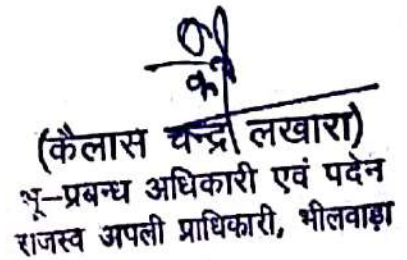 (कैलास चन्द्रा लखारा)
भू-प्रबन्ध अधिकारी एवं पदेन
राजस्व अपली प्राधिकारी, भीलवाड़ा